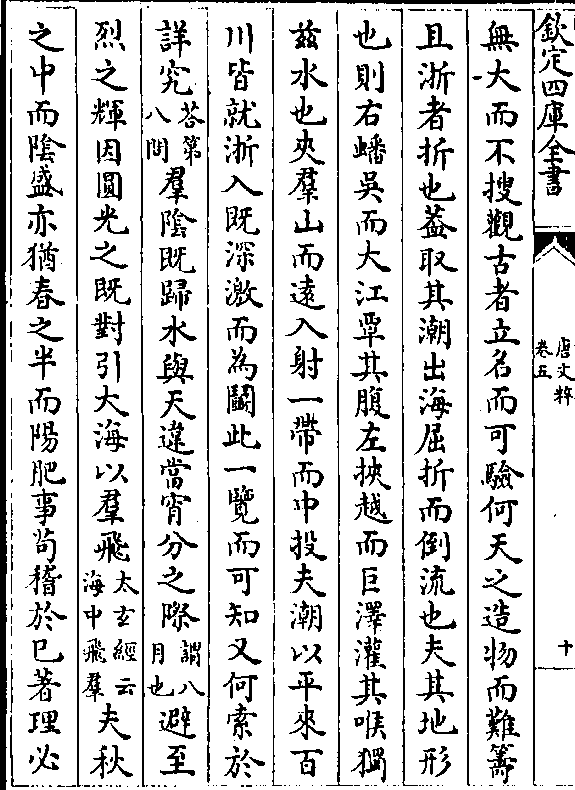 欽定四庫全書
唐文粹
卷五
十
無大而不搜觀古者立名而可驗何天之造物而難籌
且浙者折也葢取其潮出海屈折而倒流也夫其地形
也則右蟠吳而大江覃其腹左挾越而巨澤灌其喉獨
兹水也夾羣山而遠入射一帶而中投夫潮以平來百
川皆就浙入既深激而為鬭此一覽而可知又何索於
詳究荅第八問羣陰既歸水與天違當宵分之際謂八月也避至
烈之輝因圓光之既對引大海以羣飛太玄經云海中飛羣夫秋
之中而陰盛亦猶春之半而陽肥事茍稽於已著理必